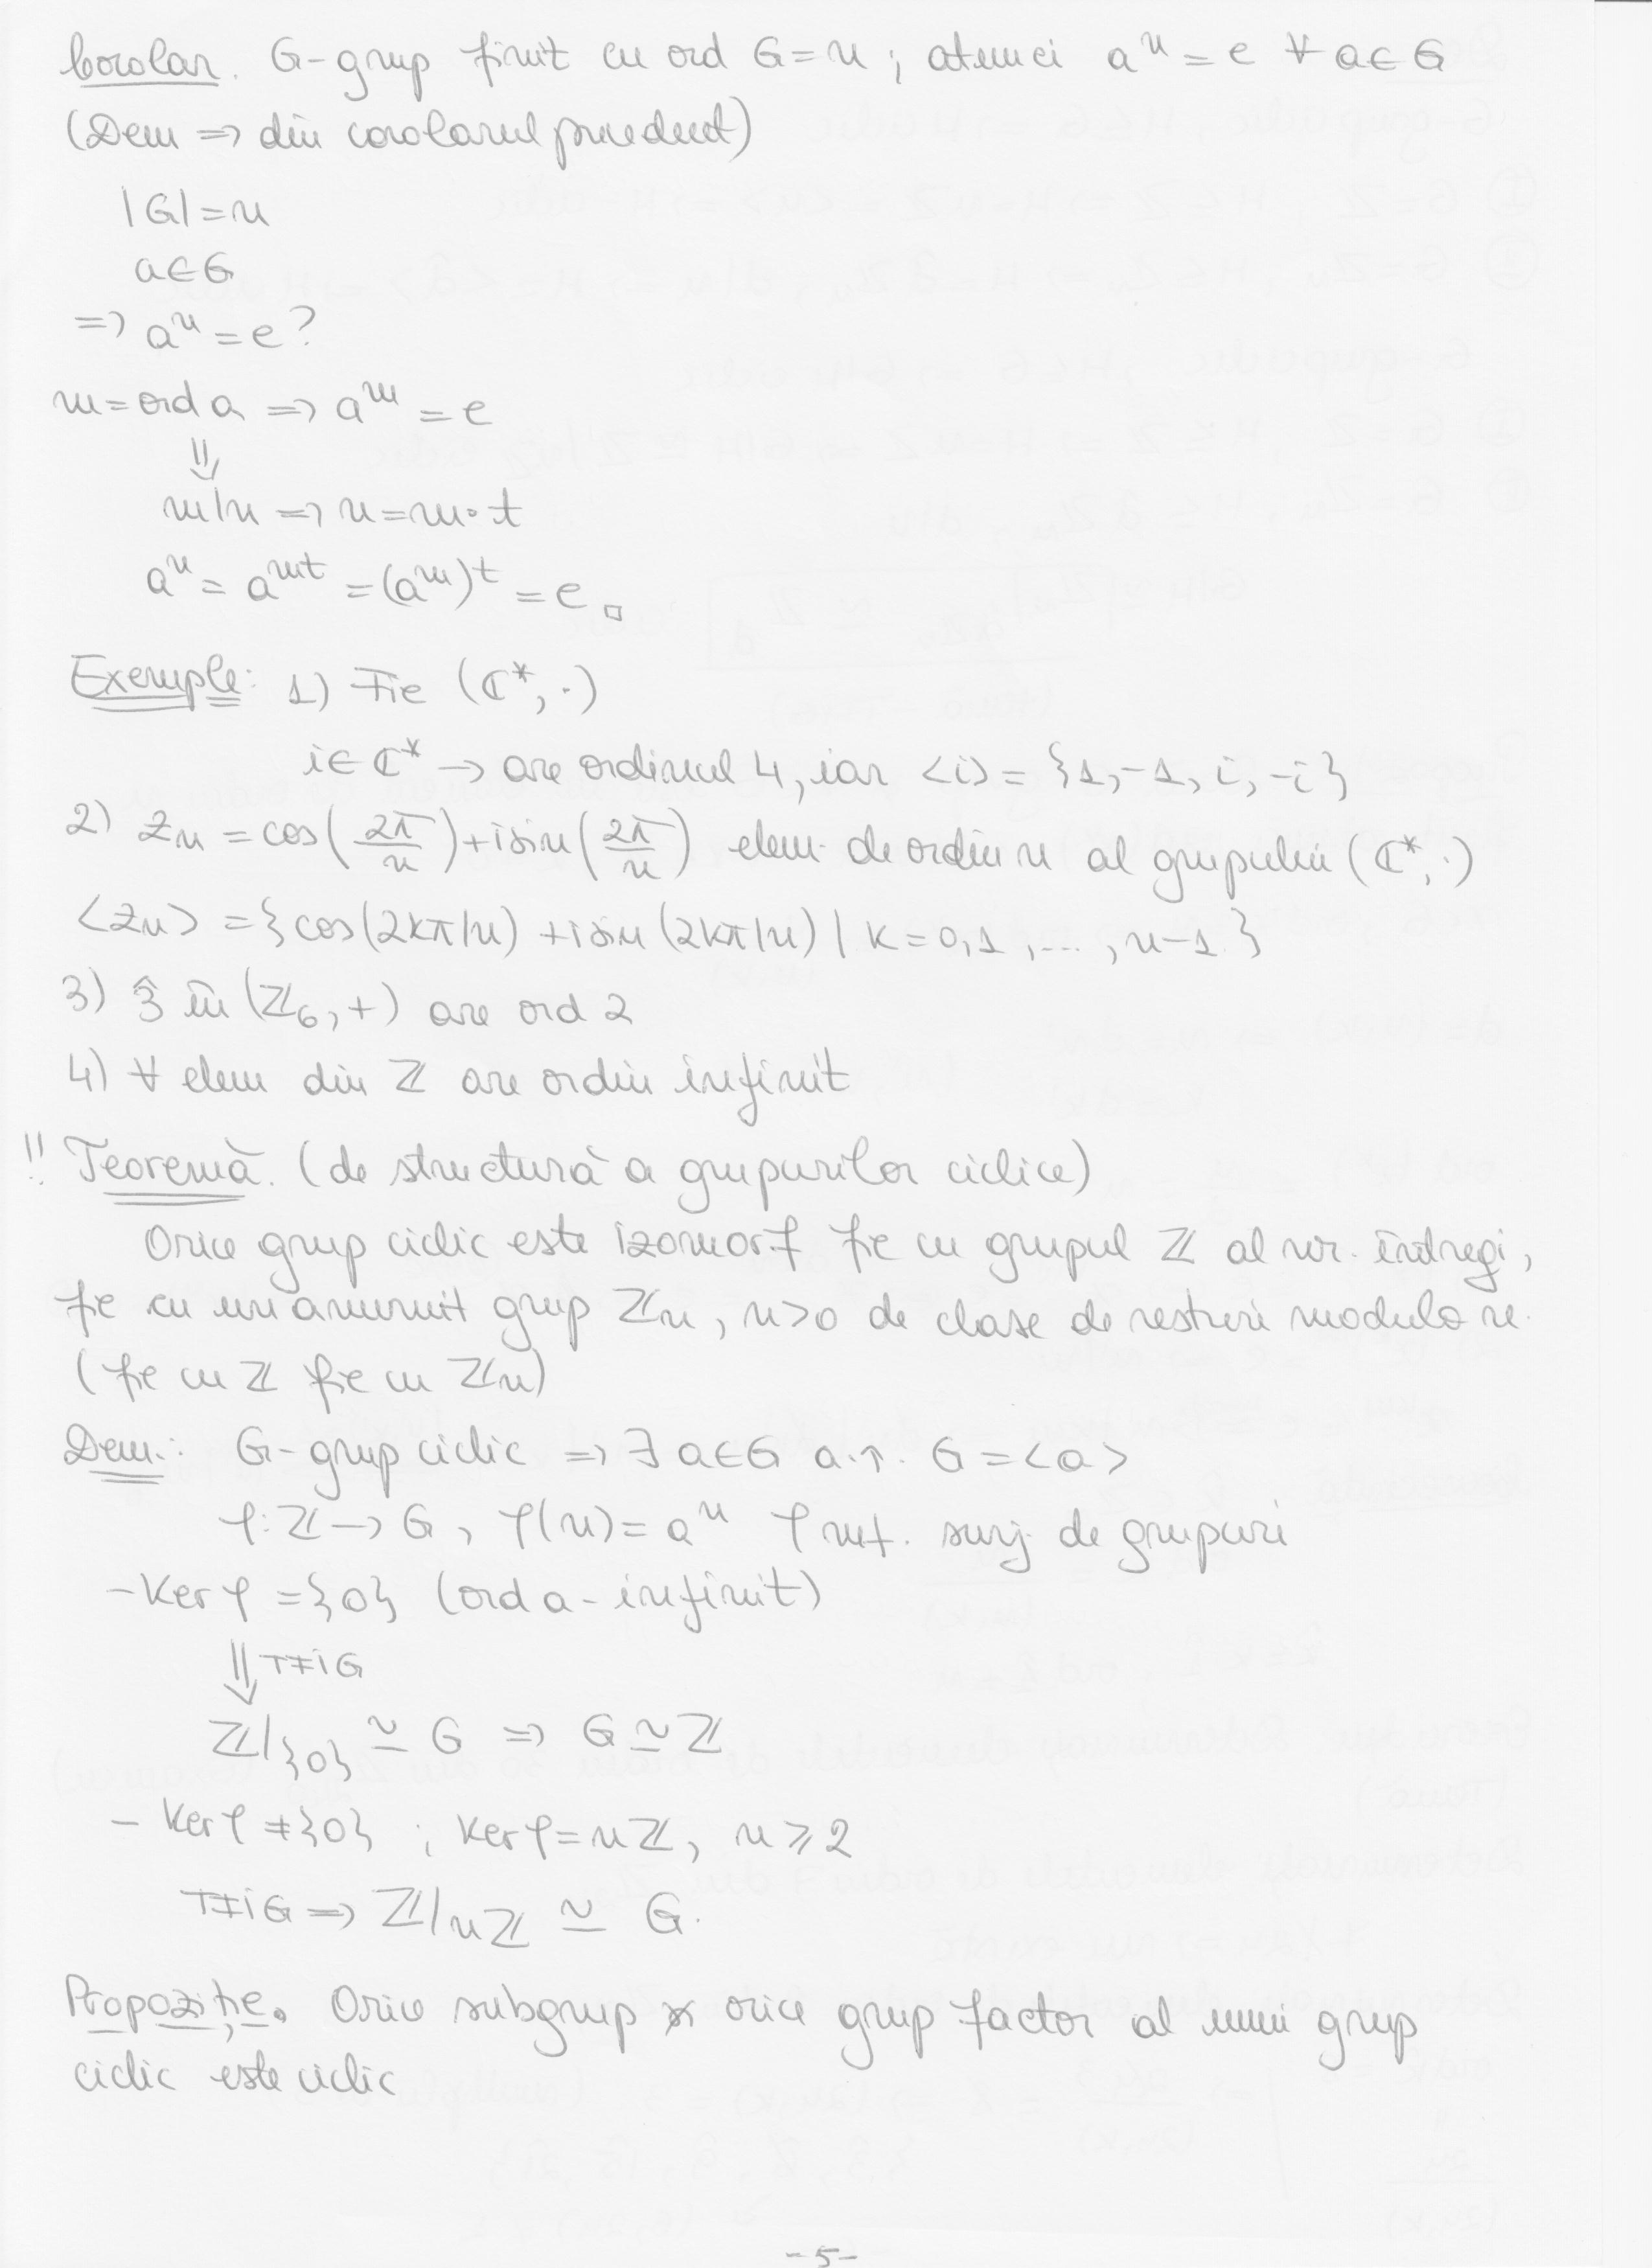 Corolar. G-grup finit cu ord G=n ; atunci aⁿ = e ∀ a∈G
(Dem => din corolarul precedent)
|G|=n
a∈G
=> aⁿ = e?
m=ord a => aᵐ = e
⇓
m|n => n=m·t
aⁿ = aᵐᵗ = (aᵐ)ᵗ = e □
Exemple: 1) Fie (ℂ*, ·)
i∈ℂ* → are ordinul 4, iar <i> = {1,-1, i, -i}
2) Zₙ = cos(2π/n)+i sin(2π/n) elem. de ordin n al grupului (ℂ*, ·)
<Zₙ> = {cos(2kπ/n) + i sin(2kπ/n) | k=0,1,...,n-1.}
3) 3̂ în (ℤ₆, +) are ord 2
4) ∀ elem din ℤ are ordin infinit
!! Teoremă. (de structură a grupurilor ciclice)
Orice grup ciclic este izomorf fie cu grupul ℤ al nr. întregi,
fie cu un anumit grup ℤₙ, n>0 de clase de resturi modulo n.
(fie cu ℤ fie cu ℤₙ)
Dem.: G-grup ciclic => ∃ a∈G a.î. G = <a>
φ: ℤ → G, φ(n) = aⁿ φ mf. surj de grupuri
-Ker φ = {0} (ord a - infinit)
⇓ TFIG
ℤ/{0} ≃ G => G ≃ ℤ
- Ker φ ≠ {0} ; Ker φ = nℤ, n ⩾ 2
TFIG => ℤ/nℤ ≃ G.
Propoziție. Orice subgrup și orice grup factor al unui grup
ciclic este ciclic
-5-